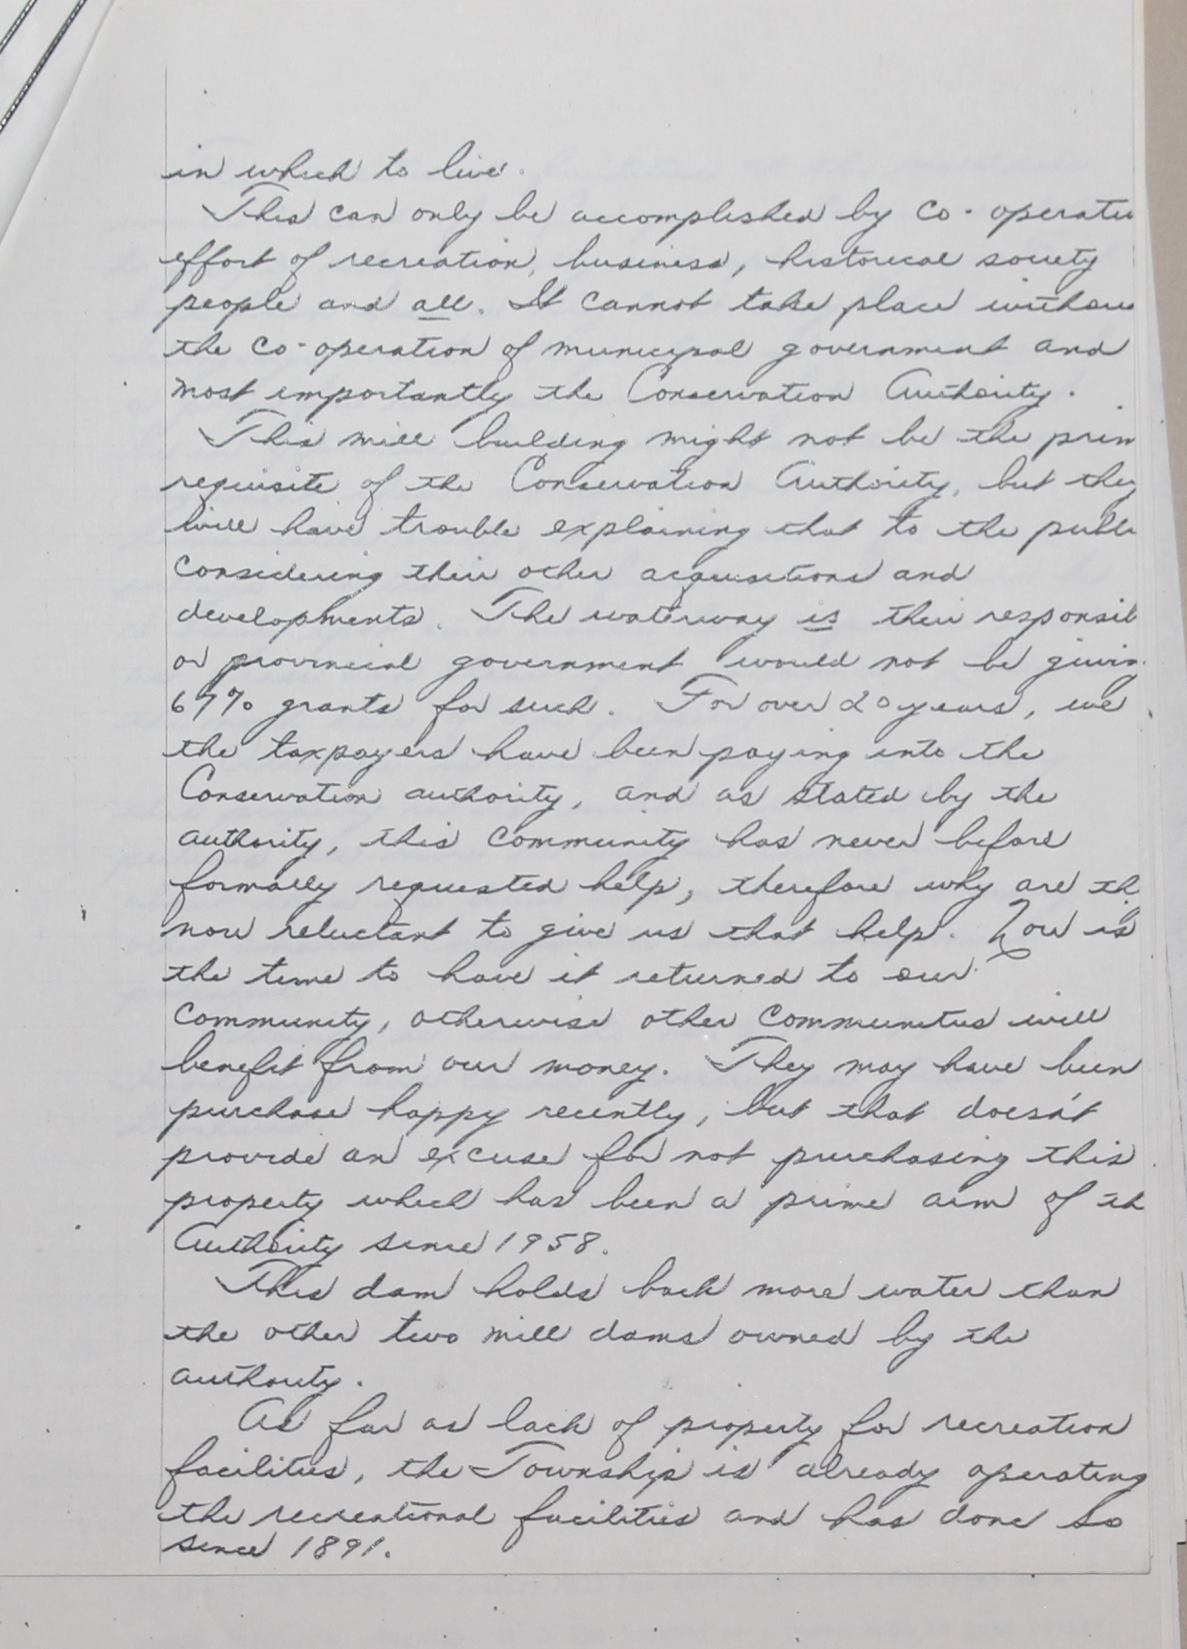 in which to live.
This can only be accomplished by co-operativ
effort of recreation, business, historical society
people and all. It cannot take place withou
the co-operation of municipal government and
most importantly the Conservation Authority.
This mill building might not be the prim
requisite of the Conservation Authority, but they
will have trouble explaining that to the publi
considering their other acquisitions and
developments. The waterway is their responsib
or provincial government would not be givin
67% grants for such. For over 20 years, we
the taxpayers have been paying into the
Conservation authority, and as stated by the
authority, this community has never before
formally requested help, therefore why are th
now reluctant to give us that help. Now is
the time to have it returned to our
community, otherwise other communities will
benefit from our money. They may have been
purchase happy recently, but that doesn't
provide an excuse for not purchasing this
property which has been a prime aim of th
Authority since 1958.
This dam holds back more water than
the other two mill dams owned by the
authority.
As far as lack of property for recreation
facilities, the Township is already operating
the recreational facilities and has done so
since 1891.